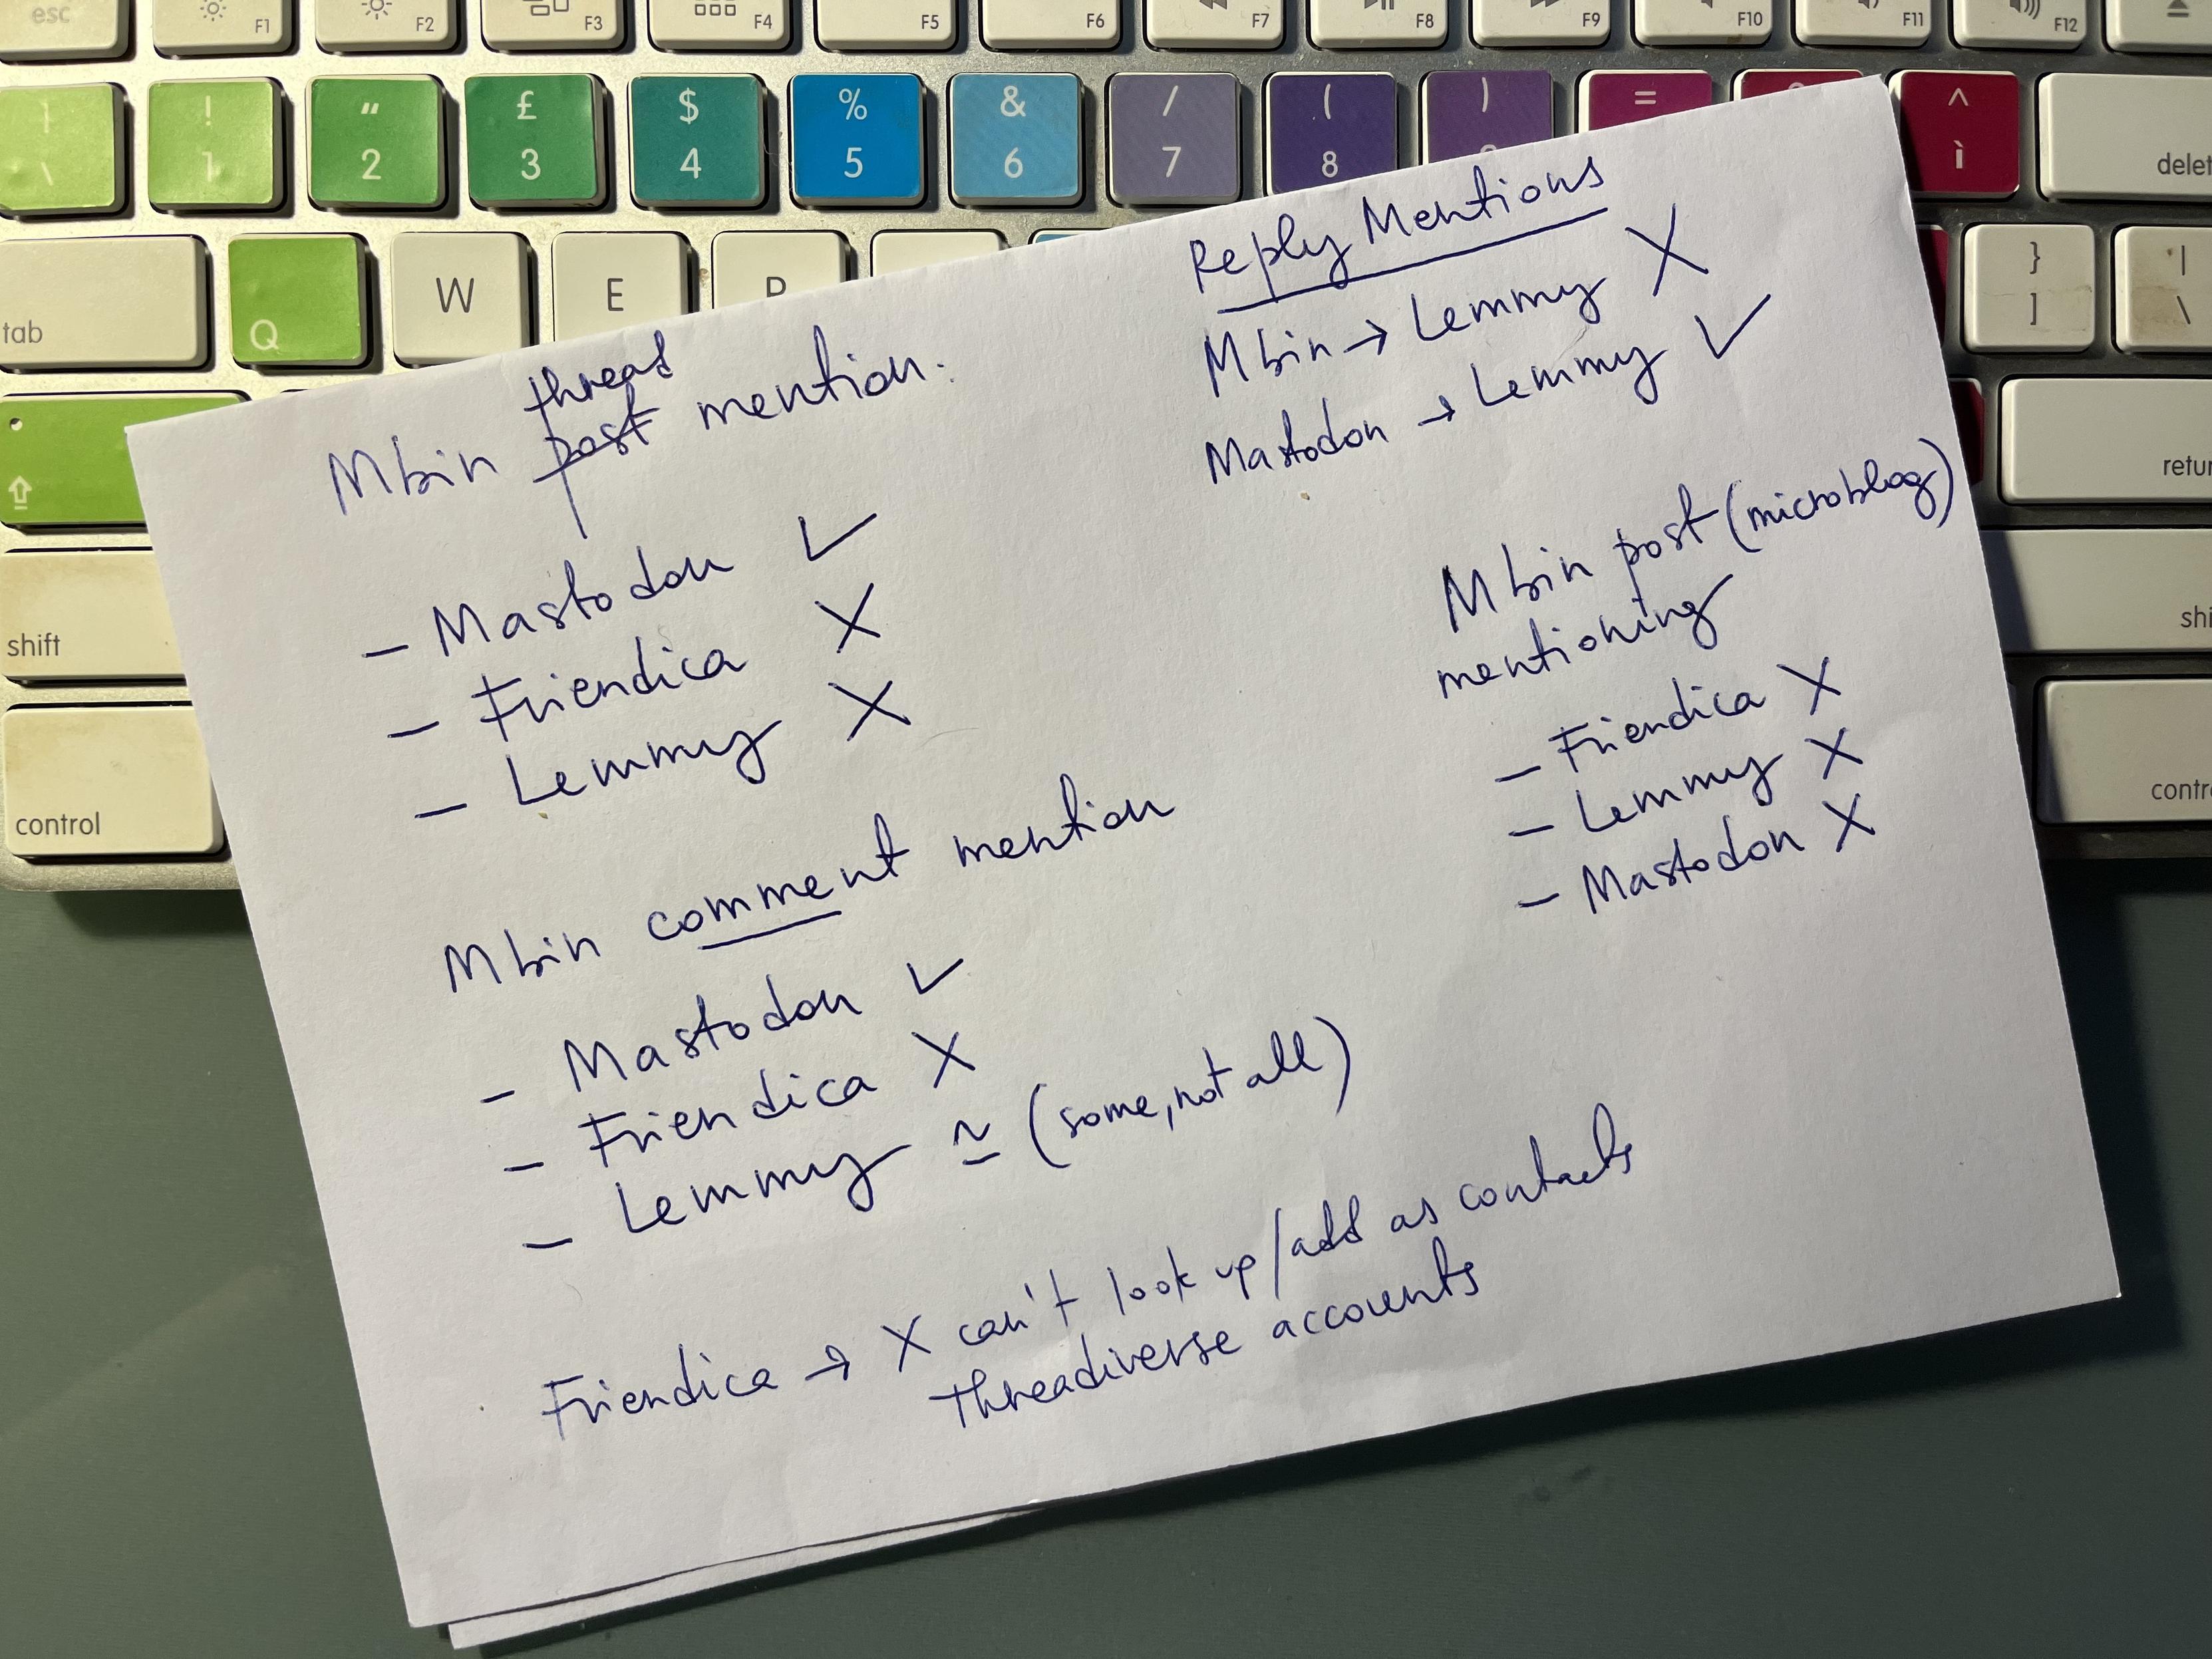 esc F1 F2 F3 F4 F5 F6 F7 F8 F9 F10 F11 F12
| ! " £ $ % & / ( ) = ^
\ 1 2 3 4 5 6 7 8 ì delet
tab Q W E } |
] \
retur
shift shi
control contr
Mbin post thread mention:
– Mastodon ✓
– Friendica X
– Lemmy X
Mbin comment mention
– Mastodon ✓
– Friendica X
– Lemmy ≃ (some, not all)
Friendica → X can't look up/add as contacts
threadiverse accounts
Reply Mentions
Mbin → Lemmy X
Mastodon → Lemmy ✓
Mbin post (microblog)
mentioning
– Friendica X
– Lemmy X
– Mastodon X